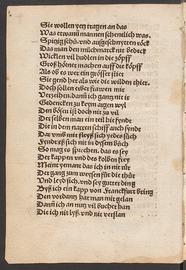 Sie wollen yetz tragen an das
Was ettwann mannen schentlich was
Spitzig schů, vnd außgeschnytten röck
Das man den milchmarckt nit bedeck
Wicklen vil hudlen in die zöpff
Groß hörner machen vff die köpff
Als ob es wer ein grösser stier
Sie gend har als wie die wilden thier.
Doch sollen erber frawen mir
Verzeihen, dann ich ganz nit ir
Gedencken zů keym argen wyl
Den bösen ist doch nit zů vil
Der selben man ein teil hie fyndt
Die in dem narren schiff auch syndt
Dar vmb mit fleyß sich yedes sůch
Fyndt es sich nit in disem bůch
So mag es sprechen, das es sey
Der kappen vnd des kolben frey
Meint yeman das ich in nit rür
Der gang zum wysen für die thür
Vnd leyd sich, vnd sey gůtter ding
Byß ich ein kapp von Franckfurt bring
Den vordantz har man mir gelan
Dann ich on nutz vil bücher han
Die ich nit lyß, vnd nit verstan